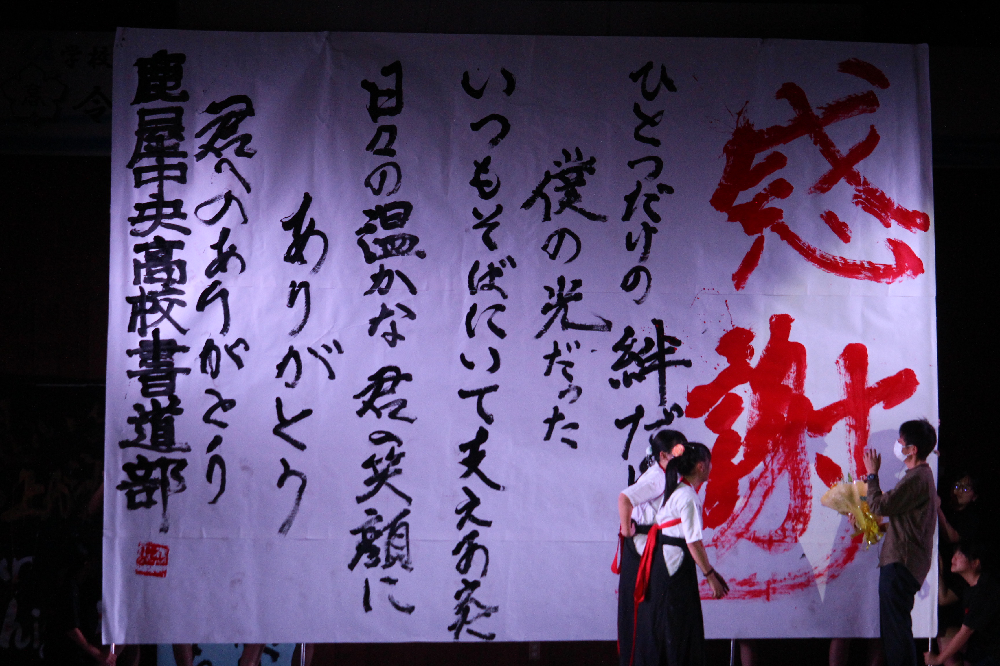 感謝
ひとつだけの絆だ
僕の光だった
いつもそばにいて支え
日々の温かな君の笑顔に
ありがとう
君へのありがとう
鹿屋中央高校書道部